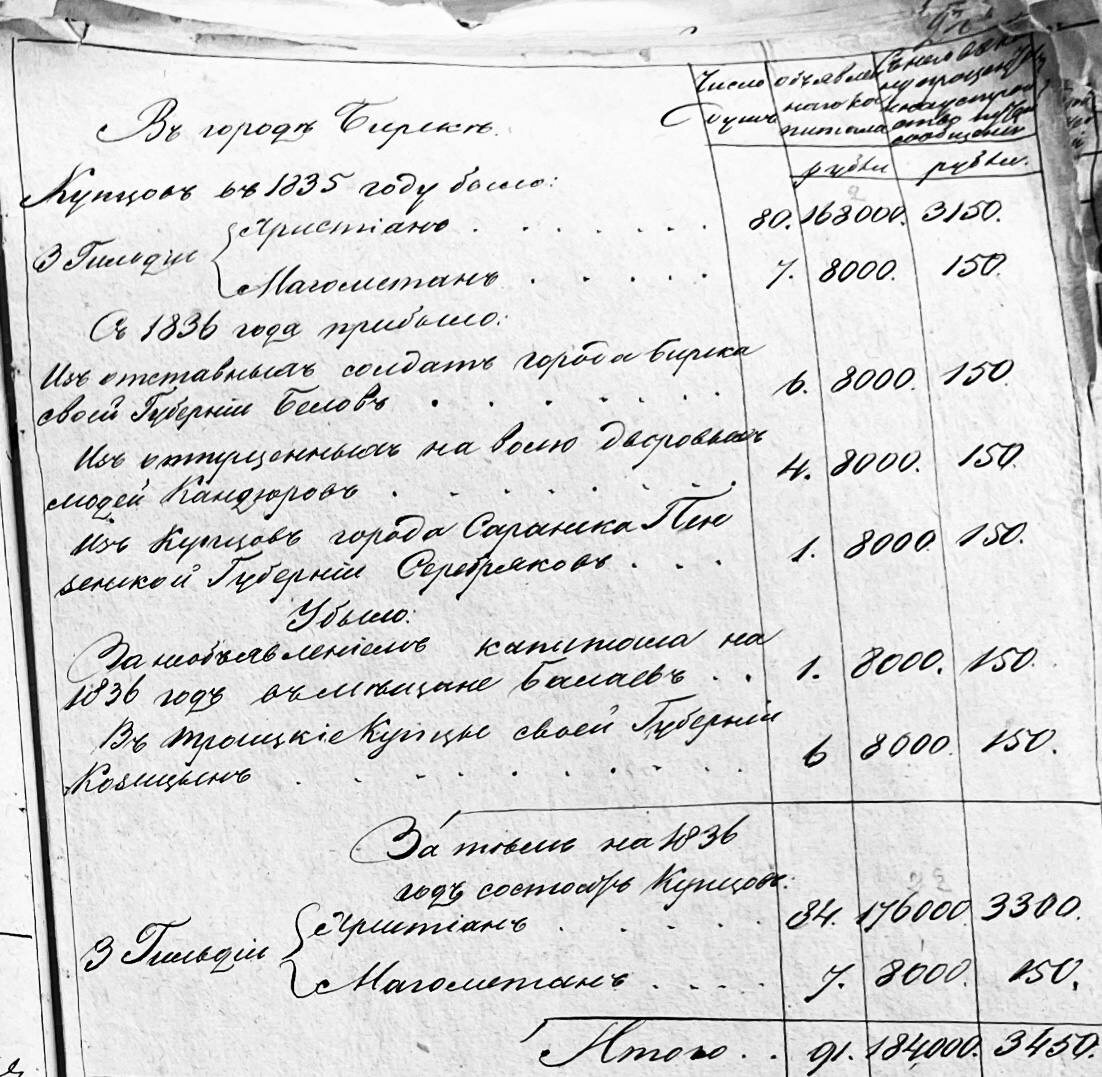 Число Душъ
объявленнаго капитала
Съ него
рубли рубли.
Въ городѣ Бирскѣ.
Купцовъ въ 1835 году было:
3 Гильдіи Христіанъ . . . . . . . 80. 168000. 3150.
Магометанъ . . . . . 7. 8000. 150.
Съ 1836 года прибыло:
Изъ отставныхъ солдатъ города Бирска
своей Губерніи Беловъ . . . . . . . 6. 8000. 150.
Изъ отпущенныхъ на волю дворовыхъ
людей Кандюровъ . . . . . . . . . 4. 8000. 150.
Изъ Купцовъ города Саранска Пен
зенской Губерніи Серебряковъ . . . 1. 8000. 150.
Убыло:
За необъявленіемъ капитала на
1836 годъ въ мѣщане Балаевъ . . 1. 8000. 150.
Въ троицкіе Купцы своей Губерніи
Козицынъ . . . . . . . . . 6 8000. 150.
За тѣмъ на 1836
годъ состоитъ Купцовъ.
3 Гильдіи Христіанъ . . . . . 84. 176000. 3300.
Магометанъ . . . . . 7. 8000. 150.
Итого . . 91. 184,000. 3450.